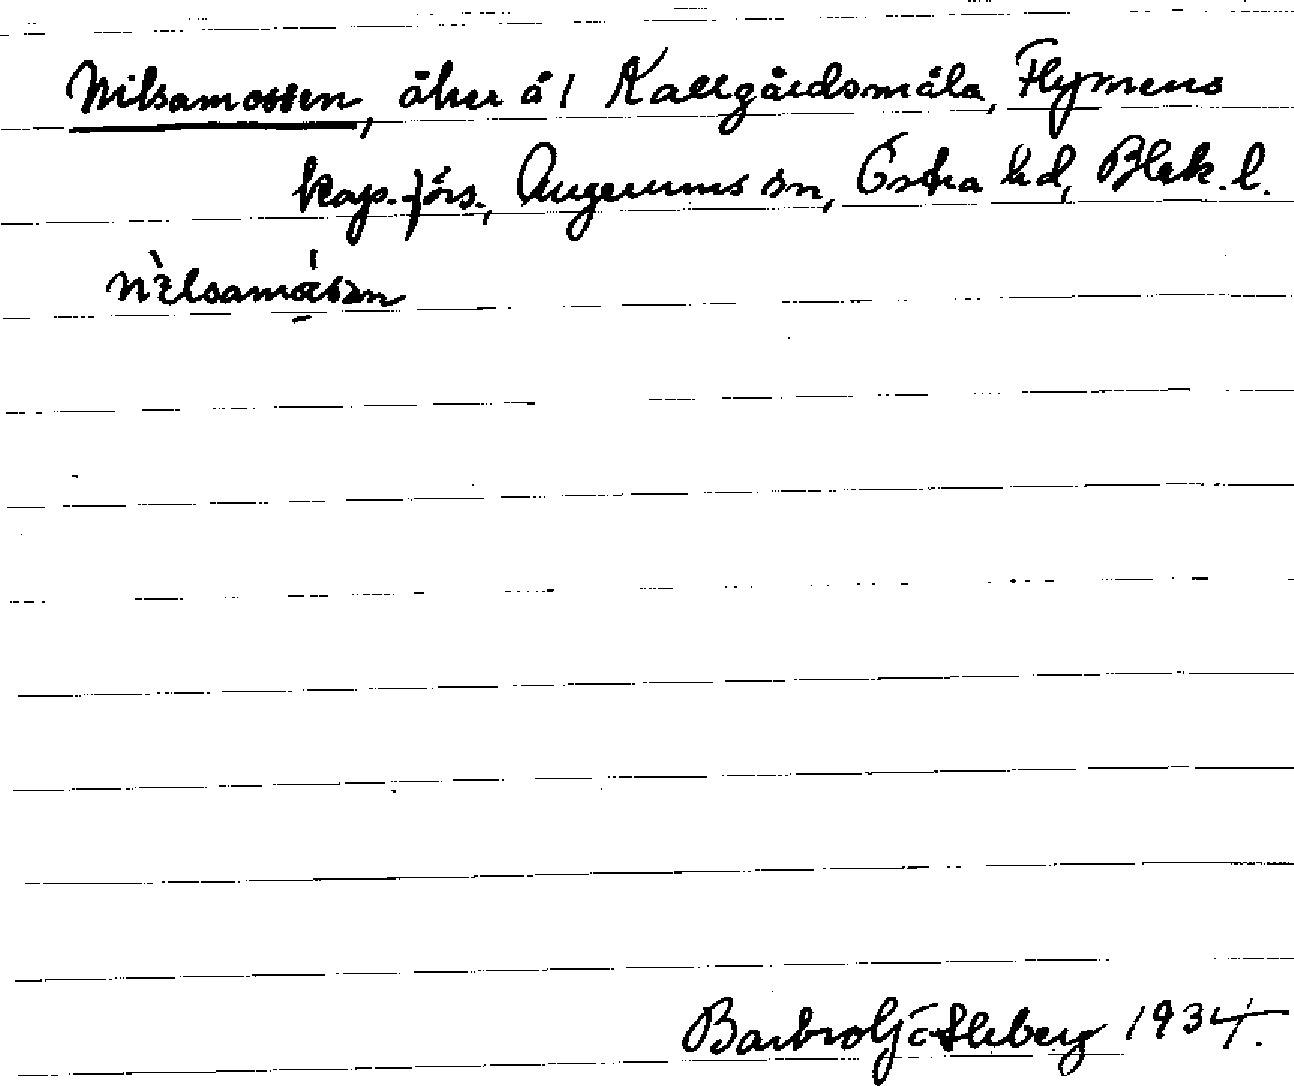 Nilsamossen, åker å 1 Kallgårdsmåla, Flymens
kap.-förs., Augerums sn, Östra hd, Blek. l.
Barbro Götleberg 1934.